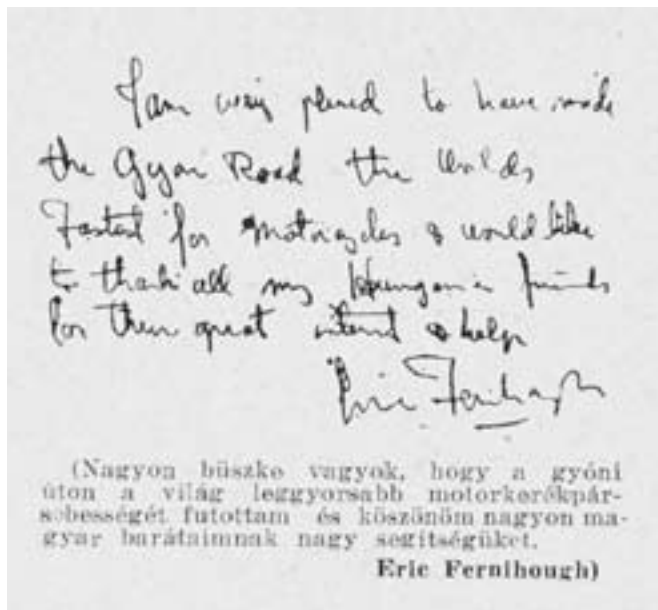 I am very pleased to have made
the Gyon Road the Worlds
Fastest for Motorcycles & would like
to thank all my Hungarian friends
for their great interest & help
Eric Fernihough
(Nagyon büszke vagyok, hogy a gyóni
úton a világ leggyorsabb motorkerékpár-
sebességét futottam és köszönöm nagyon ma-
gyar barátaimnak nagy segítségüket.
Eric Fernihough)